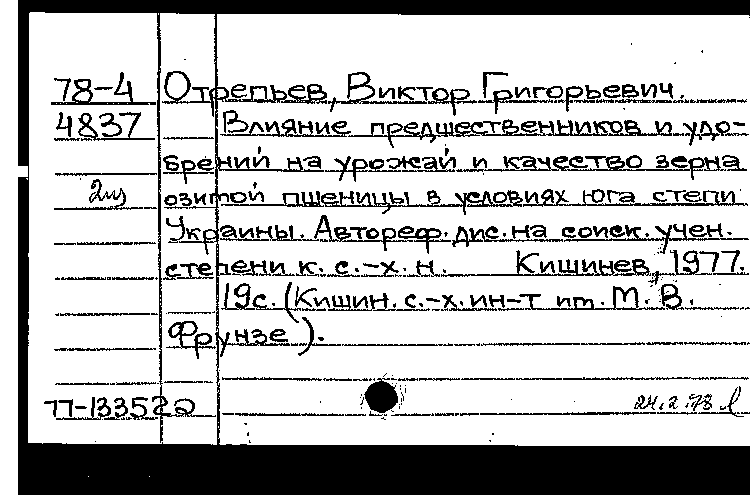 78-4 Отрепьев, Виктор Григорьевич.
4837 Влияние предшественников и удо-
брений на урожай и качество зерна
2из озимой пшеницы в условиях юга степи
Украины. Автореф. дис. на соиск. учен.
степени к. с.-х. н. Кишинев, 1977.
19с. (Кишин. с.-х. ин-т им. М. В.
Фрунзе).
77-13352 24.2.78